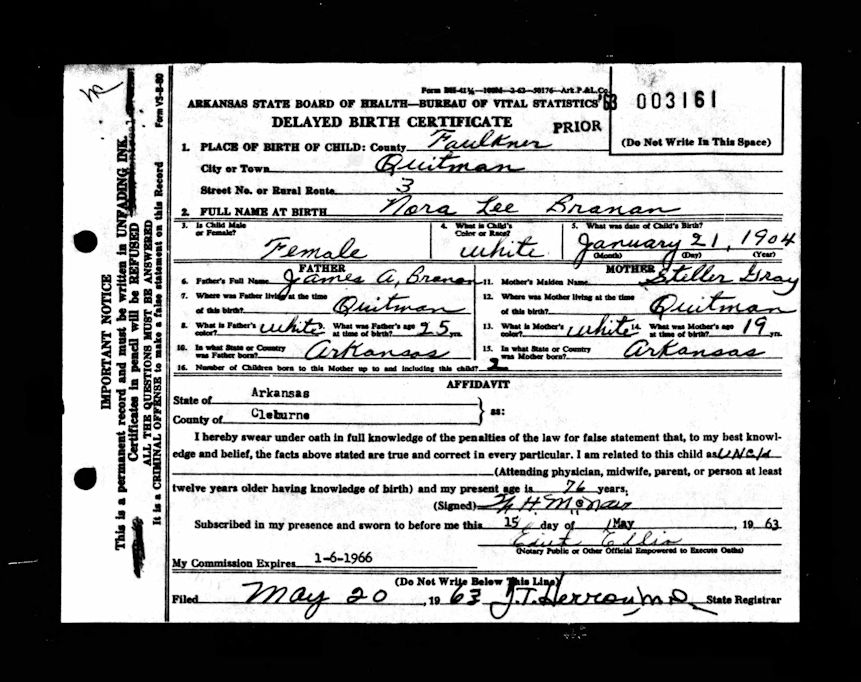 Form 10M—2-62—50176—Ark.P.&L.Co.
ARKANSAS STATE BOARD OF HEALTH—BUREAU OF VITAL STATISTICS
DELAYED BIRTH CERTIFICATE
PRIOR
63 003161
(Do Not Write In This Space)
1. PLACE OF BIRTH OF CHILD: County Faulkner
City or Town Quitman
Street No. or Rural Route 3
2. FULL NAME AT BIRTH Nora Lee Branan
3. Is Child Male or Female? Female
4. What is Child's Color or Race? white
5. What was date of Child's Birth? January 21, 1904
(Month) (Day) (Year)
FATHER
6. Father's Full Name James A. Branan
7. Where was Father living at the time
of this birth? Quitman
8. What is Father's color? white 9. What was Father's age at time of birth? 25 yrs.
10. In what State or Country was Father born? Arkansas
MOTHER
11. Mother's Maiden Name Steller Gray
12. Where was Mother living at the time
of this birth? Quitman
13. What is Mother's color? white 14. What was Mother's age at time of birth? 19 yrs.
15. In what State or Country was Mother born? Arkansas
16. Number of Children born to this Mother up to and including this child? 2
AFFIDAVIT
State of Arkansas
County of Cleburne
} ss:
I hereby swear under oath in full knowledge of the penalties of the law for false statement that, to my best knowl-
edge and belief, the facts above stated are true and correct in every particular. I am related to this child as Uncle
(Attending physician, midwife, parent, or person at least
twelve years older having knowledge of birth) and my present age is 76 years.
(Signed) H. McNair
Subscribed in my presence and sworn to before me this 15 day of May, 1963
Ellis
(Notary Public or Other Official Empowered to Execute Oaths)
My Commission Expires 1-6-1966
(Do Not Write Below This Line)
Filed May 20, 1963 J.T. Herron M.D. State Registrar
IMPORTANT NOTICE
This is a permanent record and must be written in UNFADING INK.
Certificates in pencil will be REFUSED
ALL THE QUESTIONS MUST BE ANSWERED
It is a CRIMINAL OFFENSE to make a false statement on this Record
Form VS-B-80